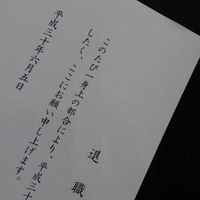 退職
このたび一身上の都合により、平成三十
したく、ここにお願い申し上げます。
平成三十年六月五日